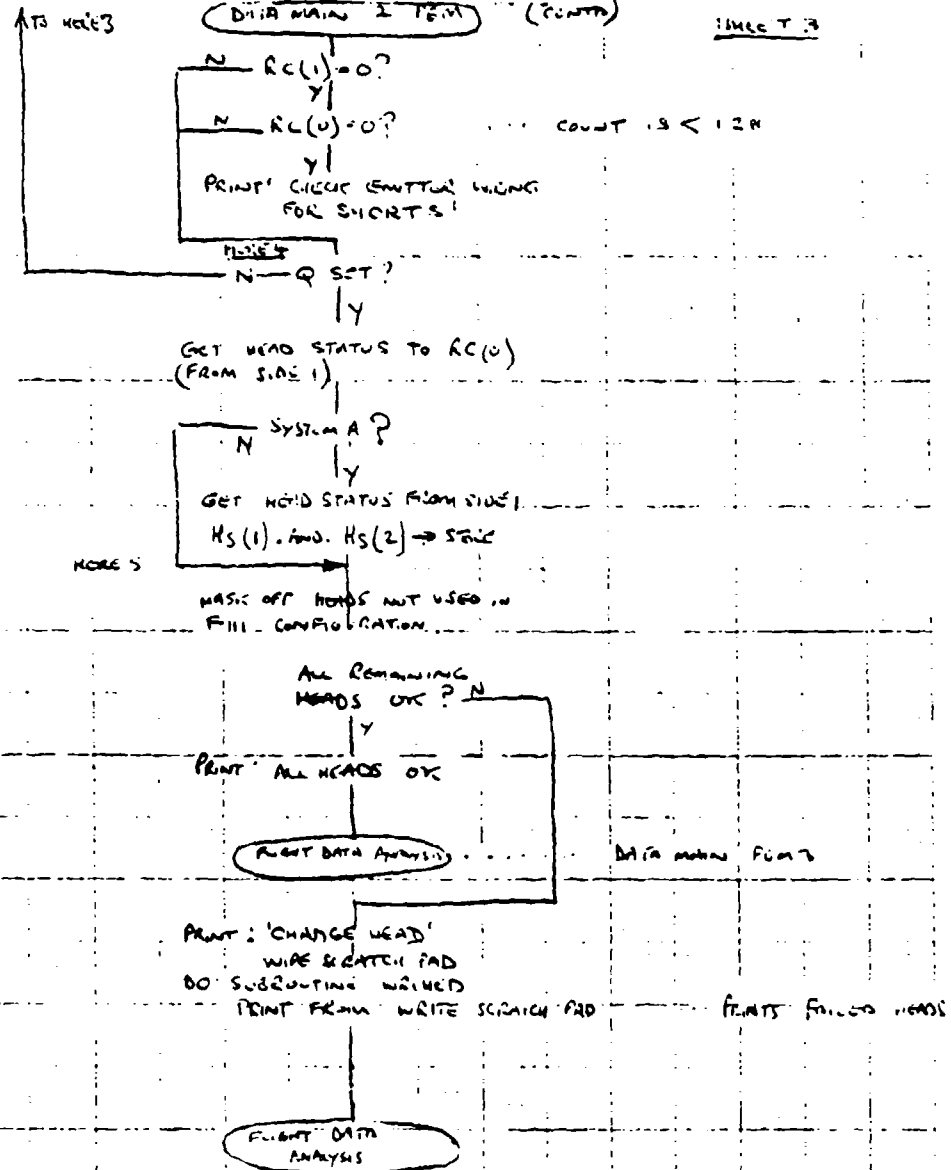 TO HERE 3
DATA MAIN 2 (CONTD)
SHEET 3
N RC(1)=0?
Y
N RC(0)=0? ... COUNT IS < 128
Y
PRINT 'CHECK EMITTER WIRING
FOR SHORTS'
HERE 4
N Q SET?
Y
GET HEAD STATUS TO RC(0)
(FROM SIDE 1)
N SYSTEM A?
Y
GET HEAD STATUS FROM SIDE 1
HS(1) .AND. HS(2) → 
HERE 5
MASK OFF HEADS NOT USED IN
F111 CONFIGURATION
ALL REMAINING
HEADS OK? N
Y
PRINT ALL HEADS OK
FLIGHT DATA ANALYSIS
DATA MAIN
PRINT: 'CHANGE HEAD'
WIPE SCRATCH PAD
DO SUBROUTINE
PRINT FROM WRITE SCRATCH PAD
PRINTS FAILED HEADS
FLIGHT DATA
ANALYSIS